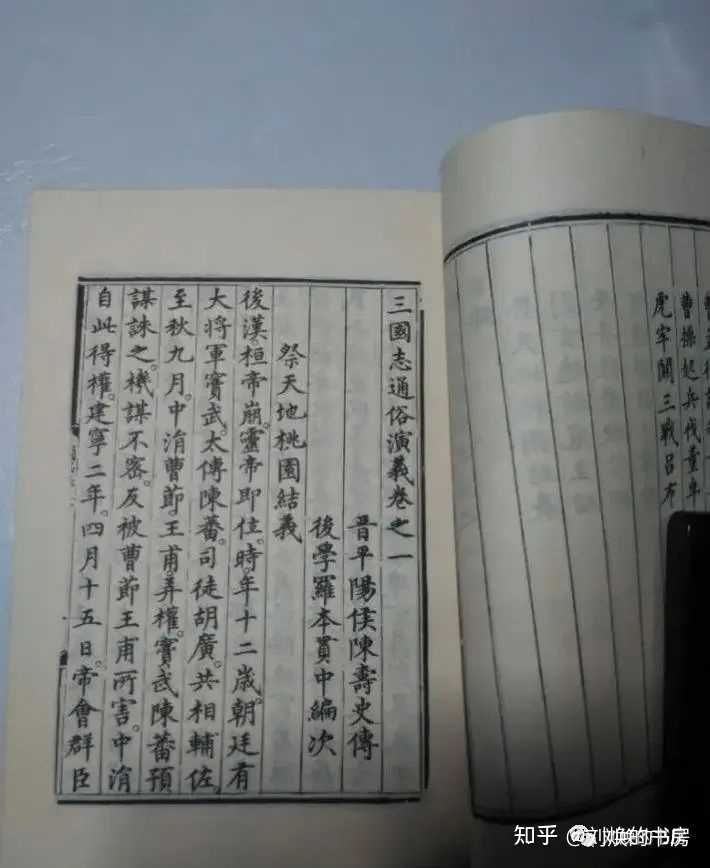 曹操起兵伐董卓
虎牢關三戰呂布
三國志通俗演義卷之一
晋平陽侯陳壽史傳
後學羅本貫中編次
祭天地桃園結義
後漢。桓帝崩。靈帝即位。時年十二歲。朝廷有
大將軍竇武。太傅陳蕃。司徒胡廣。共相輔佐。
至秋九月。中涓曹節。王甫弄權。竇武陳蕃預
謀誅之。機謀不密。反被曹節王甫所害。中涓
自此得權。建寧二年。四月十五日。帝會群臣
知乎 @刘焕的书房